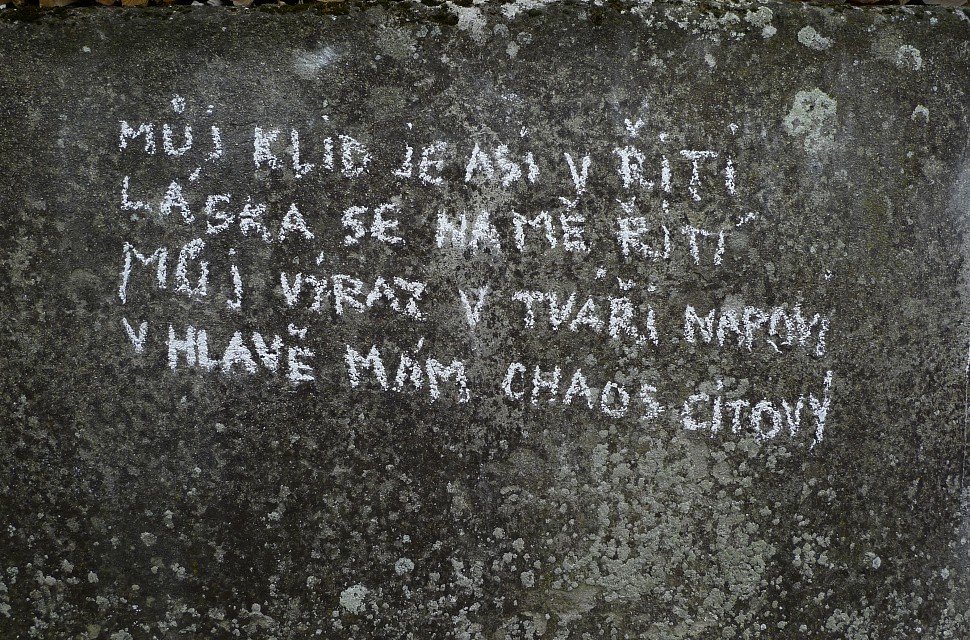 MŮJ KLID JE ASI V ŘITI
LÁSKA SE NA MĚ ŘÍTÍ
MŮJ VÝRAZ V TVÁŘI NAPOVÍ
V HLAVĚ MÁM CHAOS CITOVÝ